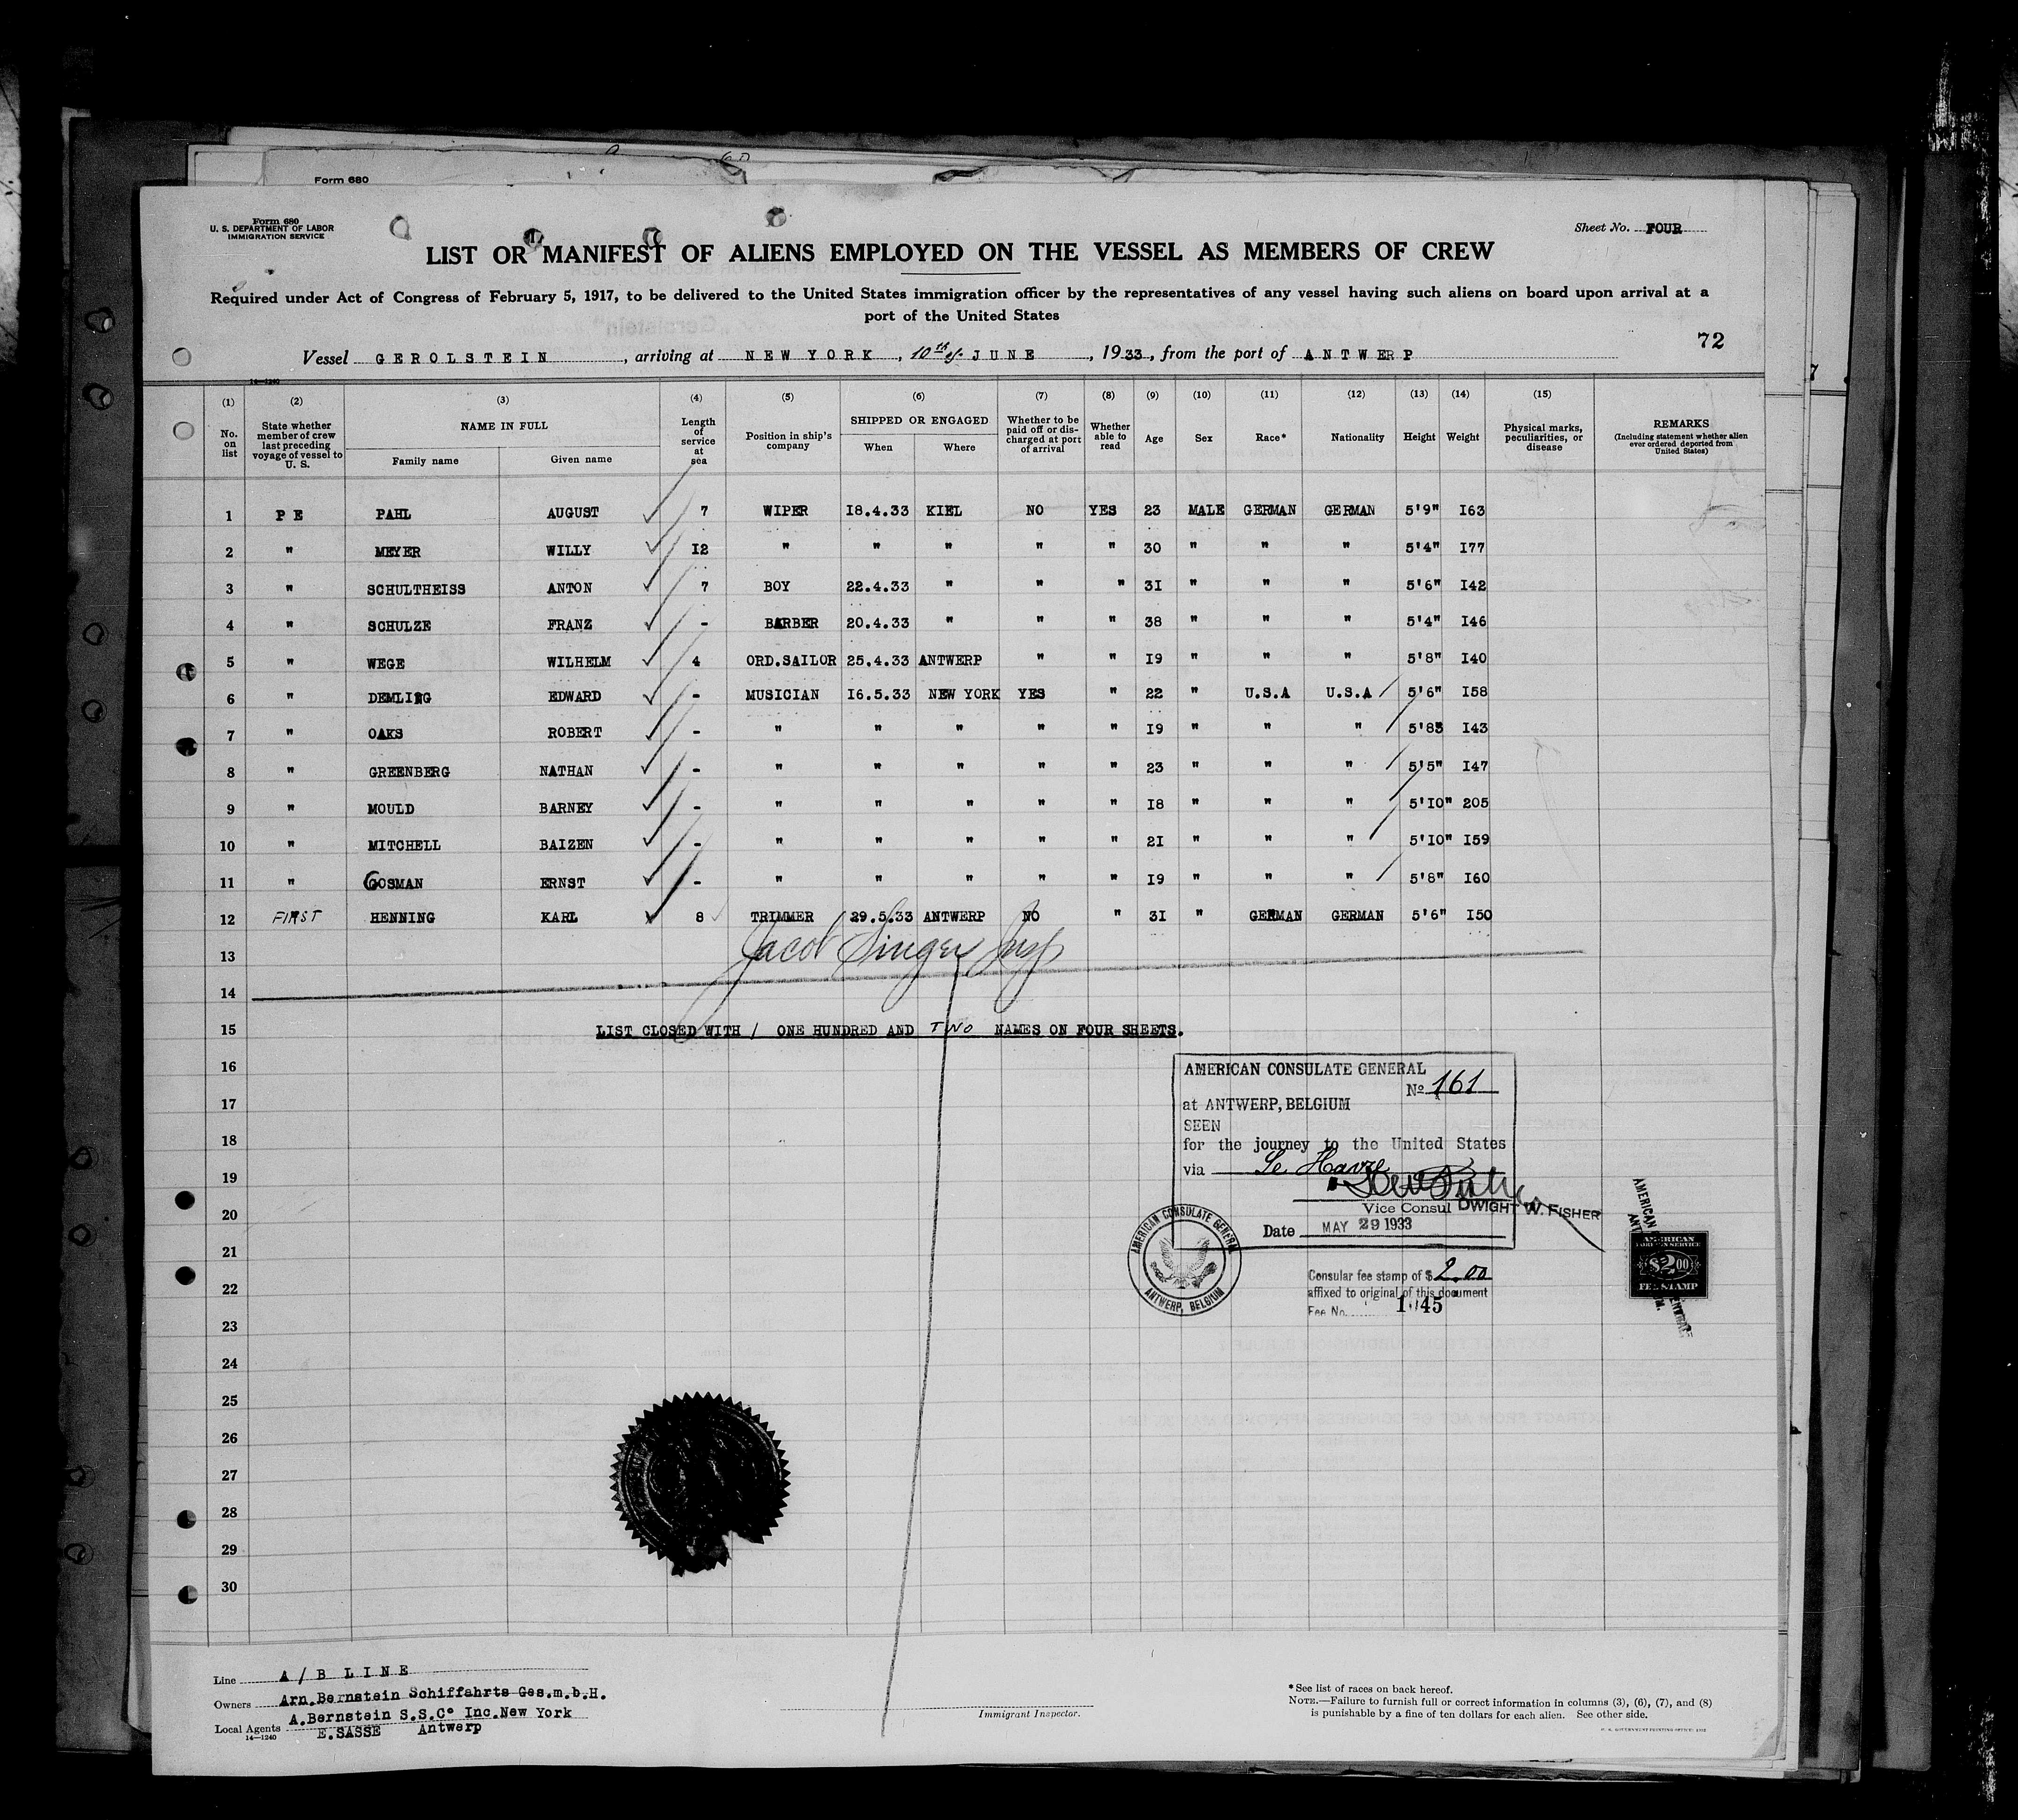 Form 680
Form 680
U. S. DEPARTMENT OF LABOR
IMMIGRATION SERVICE
Sheet No. FOUR
LIST OR MANIFEST OF ALIENS EMPLOYED ON THE VESSEL AS MEMBERS OF CREW
Required under Act of Congress of February 5, 1917, to be delivered to the United States immigration officer by the representatives of any vessel having such aliens on board upon arrival at a
port of the United States
72
Vessel GEROLSTEIN, arriving at NEW YORK, 10th of JUNE, 1933, from the port of ANTWERP
14—1240
(1) (2) (3) (4) (5) (6) (7) (8) (9) (10) (11) (12) (13) (14) (15)
No. on list
State whether member of crew last preceding voyage of vessel to U. S.
NAME IN FULL
Family name Given name
Length of service at sea
Position in ship's company
SHIPPED OR ENGAGED
When Where
Whether to be paid off or discharged at port of arrival
Whether able to read
Age
Sex
Race*
Nationality
Height
Weight
Physical marks, peculiarities, or disease
REMARKS
(Including statement whether alien ever ordered deported from United States)
1 P E PAHL AUGUST 7 WIPER 18.4.33 KIEL NO YES 23 MALE GERMAN GERMAN 5'9" I63
2 " MEYER WILLY I2 " " " " " 30 " " " 5'4" I77
3 " SCHULTHEISS ANTON 7 BOY 22.4.33 " " " 3I " " " 5'6" I42
4 " SCHULZE FRANZ - BARBER 20.4.33 " " " 38 " " " 5'4" I46
5 " WEGE WILHELM 4 ORD.SAILOR 25.4.33 ANTWERP " " I9 " " " 5'8" I40
6 " DEMLING EDWARD - MUSICIAN I6.5.33 NEW YORK YES " 22 " U.S.A U.S.A 5'6" I58
7 " OAKS ROBERT - " " " " " I9 " " " 5'8" I43
8 " GREENBERG NATHAN - " " " " " 23 " " " 5'5" I47
9 " MOULD BARNEY - " " " " " I8 " " " 5'IO" 205
10 " MITCHELL BAIZEN - " " " " " 2I " " " 5'IO" I59
11 " GOSMAN ERNST - " " " " " I9 " " " 5'8" I60
12 FIRST HENNING KARL 8 TRIMMER 29.5.33 ANTWERP NO " 3I " GERMAN GERMAN 5'6" I50
13
Jacob Singer Insp
14
15 LIST CLOSED WITH / ONE HUNDRED AND TWO NAMES ON FOUR SHEETS.
16
17
18
19
20
21
22
23
24
25
26
27
28
29
30
AMERICAN CONSULATE GENERAL
No 161
at ANTWERP, BELGIUM
SEEN
for the journey to the United States
via Le Havre
Vice Consul DWIGHT W. FISHER
Date MAY 29 1933
AMERICAN CONSULATE GENERAL
ANTWERP, BELGIUM
Consular fee stamp of $ 2.00
affixed to original of this document
Fee No.
AMERICAN
FOREIGN SERVICE
$2.00
FEE STAMP
Line A/B LINE
Owners Arn.Bernstein Schiffahrts Ges.m.b.H.
Local Agents A.Bernstein S.S.Co Inc.New York
E.SASSE Antwerp
14—1240
Immigrant Inspector.
* See list of races on back hereof.
NOTE.—Failure to furnish full or correct information in columns (3), (6), (7), and (8)
is punishable by a fine of ten dollars for each alien. See other side.